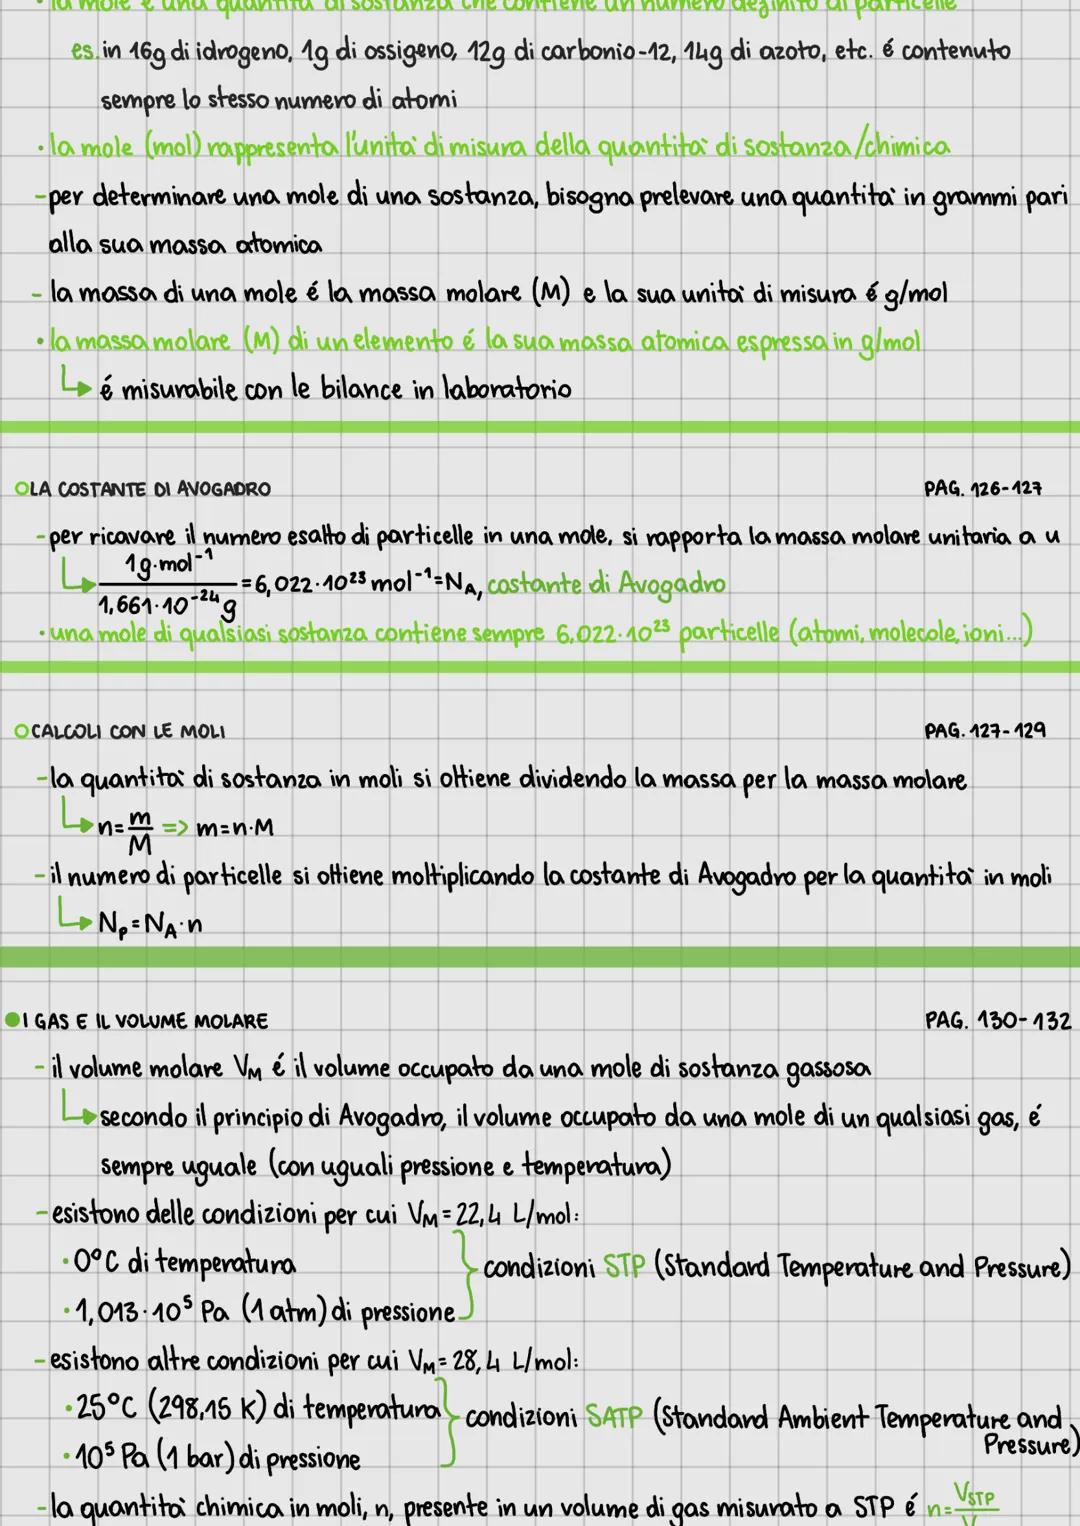 la mole é una quantità di sostanza che contiene un numero definito di particelle
es. in 16g di idrogeno, 1g di ossigeno, 12g di carbonio-12, 14g di azoto, etc. é contenuto
sempre lo stesso numero di atomi
• la mole (mol) rappresenta l'unità di misura della quantità di sostanza/chimica
- per determinare una mole di una sostanza, bisogna prelevare una quantità in grammi pari
alla sua massa atomica
- la massa di una mole é la massa molare (M) e la sua unità di misura é g/mol
• la massa molare (M) di un elemento é la sua massa atomica espressa in g/mol
é misurabile con le bilance in laboratorio
LA COSTANTE DI AVOGADRO PAG. 126-127
- per ricavare il numero esatto di particelle in una mole, si rapporta la massa molare unitaria a u
1g·mol⁻¹ / 1,661·10⁻²⁴ g = 6,022·10²³ mol⁻¹ = N_A, costante di Avogadro
• una mole di qualsiasi sostanza contiene sempre 6,022·10²³ particelle (atomi, molecole, ioni...)
CALCOLI CON LE MOLI PAG. 127-129
- la quantità di sostanza in moli si ottiene dividendo la massa per la massa molare
n = m/M => m=n·M
- il numero di particelle si ottiene moltiplicando la costante di Avogadro per la quantità in moli
Nₚ = N_A·n
I GAS E IL VOLUME MOLARE PAG. 130-132
- il volume molare V_M é il volume occupato da una mole di sostanza gassosa
secondo il principio di Avogadro, il volume occupato da una mole di un qualsiasi gas, é
sempre uguale (con uguali pressione e temperatura)
- esistono delle condizioni per cui V_M = 22,4 L/mol:
• 0°C di temperatura
condizioni STP (Standard Temperature and Pressure)
• 1,013·10⁵ Pa (1 atm) di pressione
- esistono altre condizioni per cui V_M = 28,4 L/mol:
• 25°C (298,15 K) di temperatura
condizioni SATP (Standard Ambient Temperature and
Pressure)
• 10⁵ Pa (1 bar) di pressione
- la quantità chimica in moli, n, presente in un volume di gas misurato a STP é n = V_STP